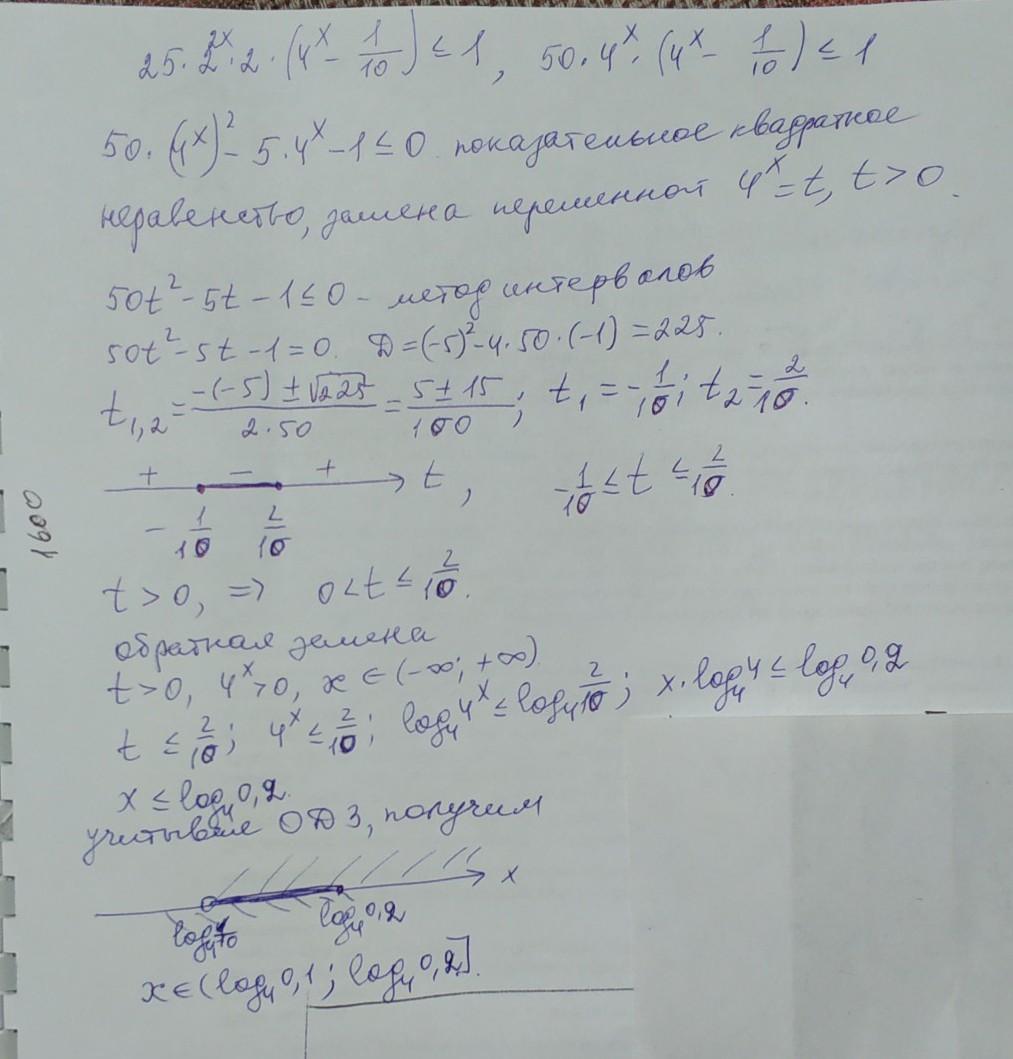 25·2^{2x}·2·(4^x − 1/10) ≤ 1, 50·4^x·(4^x − 1/10) ≤ 1
50·(4^x)² − 5·4^x − 1 ≤ 0 показательное квадратное
неравенство, замена переменной 4^x = t, t > 0.
50t² − 5t − 1 ≤ 0 – метод интервалов
50t² − 5t − 1 = 0. D = (−5)² − 4·50·(−1) = 225.
t_{1,2} = (−(−5) ± √225)/(2·50) = (5 ± 15)/100; t₁ = −1/10; t₂ = 2/10.
+ − + t, −1/10 ≤ t ≤ 2/10.
−1/10 2/10
1600
t > 0, ⇒ 0 < t ≤ 2/10.
обратная замена
t > 0, 4^x > 0, x ∈ (−∞; +∞)
t ≤ 2/10; 4^x ≤ 2/10; log₄4^x ≤ log₄ 2/10; x·log₄4 ≤ log₄0,2
x ≤ log₄0,2.
учитывая ОДЗ, получим
x
log₄ 1/10 log₄0,2
x ∈ (log₄0,1; log₄0,2].